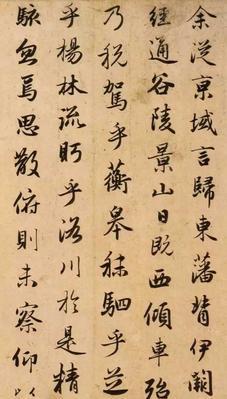 余從京域言歸東藩背伊闕
經通谷陵景山日既西傾車殆
乃税駕乎蘅皋秣駟乎芝
乎楊林流眄乎洛川於是精
駭忽焉思散俯則未察仰以